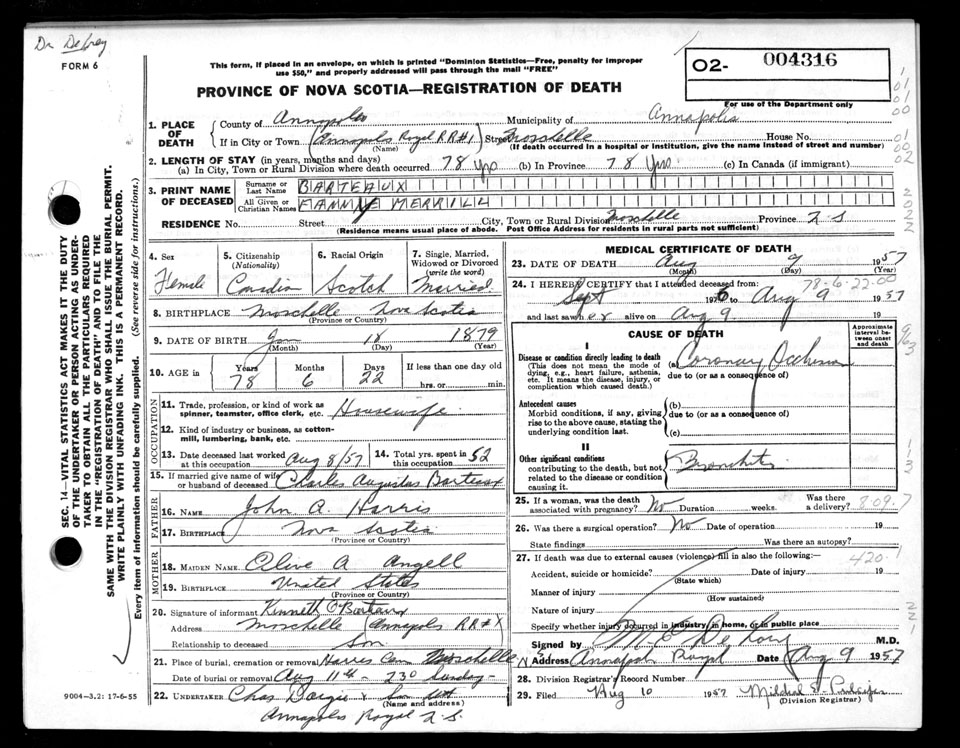 Dr
FORM 6
This form, if placed in an envelope, on which is printed "Dominion Statistics—Free, penalty for improper
use $50," and properly addressed will pass through the mail "FREE"
O2- 004316
For use of the Department only
PROVINCE OF NOVA SCOTIA—REGISTRATION OF DEATH
1. PLACE OF DEATH
County of Annapolis Municipality of Annapolis
If in City or Town (Annapolis Royal RR#1) Street Moschelle House No.
(Name) (If death occurred in a hospital or institution, give the name instead of street and number)
2. LENGTH OF STAY (in years, months and days)
(a) In City, Town or Rural Division where death occurred 78 Yrs (b) In Province 78 Yrs. (c) In Canada (if immigrant)
3. PRINT NAME OF DECEASED
Surname or Last Name BARTEAUX
All Given or Christian Names FANNIE MERRILL
RESIDENCE No. Street City, Town or Rural Division Moschelle Province N.S
(Residence means usual place of abode. Post Office Address for residents in rural parts not sufficient)
4. Sex
Female
5. Citizenship (Nationality)
Canadian
6. Racial Origin
Scotch
7. Single, Married, Widowed or Divorced (write the word)
Married.
8. BIRTHPLACE Moschelle Nova Scotia
(Province or Country)
9. DATE OF BIRTH Jan 18 1879
(Month) (Day) (Year)
10. AGE in Years Months Days If less than one day old
78 6 22 hrs. or min.
OCCUPATION
11. Trade, profession, or kind of work as
spinner, teamster, office clerk, etc. Housewife.
12. Kind of industry or business, as cotton-
mill, lumbering, bank, etc.
13. Date deceased last worked
at this occupation Aug 8/57
14. Total yrs. spent in
this occupation 52
15. If married give name of wife
or husband of deceased Charles Augustus Barteaux
FATHER
16. Name John A. Harris
17. Birthplace Nova Scotia
(Province or Country)
MOTHER
18. MAIDEN NAME Olive A Angell
19. BIRTHPLACE United States
(Province or Country)
20. Signature of informant Kenneth O Barteaux
Address Moschelle Annapolis RR#1
Relationship to deceased Son
21. Place of burial, cremation or removal Harris Cem Moschelle
Date of burial or removal Aug 11th - 2:30 Sunday-
22. UNDERTAKER Chas & Son
(Name and address)
Annapolis Royal N.S.
MEDICAL CERTIFICATE OF DEATH
23. DATE OF DEATH Aug 9 1957
(Month) (Day) (Year)
78-6-22.00
24. I HEREBY CERTIFY that I attended deceased from:
Sept 19 to Aug 9 1957
and last saw her alive on Aug 9. 19
CAUSE OF DEATH
Approximate interval between onset and death
I
Disease or condition directly leading to death
(This does not mean the mode of
dying, e.g., heart failure, asthenia,
etc. It means the disease, injury, or
complication which caused death.)
(a) Coronary Occlusion
due to (or as a consequence of)
Antecedent causes
Morbid conditions, if any, giving
rise to the above cause, stating the
underlying condition last.
(b)
due to (or as a consequence of)
(c)
II
Other significant conditions
contributing to the death, but not
related to the disease or condition
causing it.
Bronchitis
25. If a woman, was the death
associated with pregnancy? No Duration weeks. Was there a delivery?
8-09.7
26. Was there a surgical operation? No Date of operation 19
State findings Was there an autopsy?
27. If death was due to external causes (violence) fill in also the following:—
420.1
Accident, suicide or homicide? Date of injury 19
(State which)
Manner of injury
(How sustained)
Nature of injury
Specify whether injury occurred in industry, in home, or in public place
Signed by M.D.
Address Annapolis Royal Date Aug 9 1957
28. Division Registrar's Record Number
29. Filed Aug 10 1957 Mildred
(Division Registrar)
SEC. 14—VITAL STATISTICS ACT MAKES IT THE DUTY
OF THE UNDERTAKER OR PERSON ACTING AS UNDER-
TAKER TO OBTAIN ALL THE PARTICULARS REQUIRED
IN THE "REGISTRATION OF DEATH" AND TO FILE THE
SAME WITH THE DIVISION REGISTRAR WHO SHALL ISSUE THE BURIAL PERMIT.
WRITE PLAINLY WITH UNFADING INK. THIS IS A PERMANENT RECORD.
Every item of information should be carefully supplied. (See reverse side for instructions.)
9004—3.2: 17-6-55